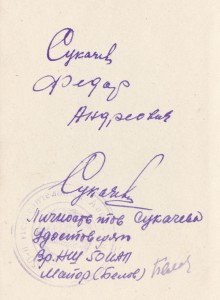 Сукачев
Федар
Андреовия
Сукачев
Личность тов Сукачева
Удостоверяю
Вр. НШ 50 ИАП
Майор (Белов) Белов